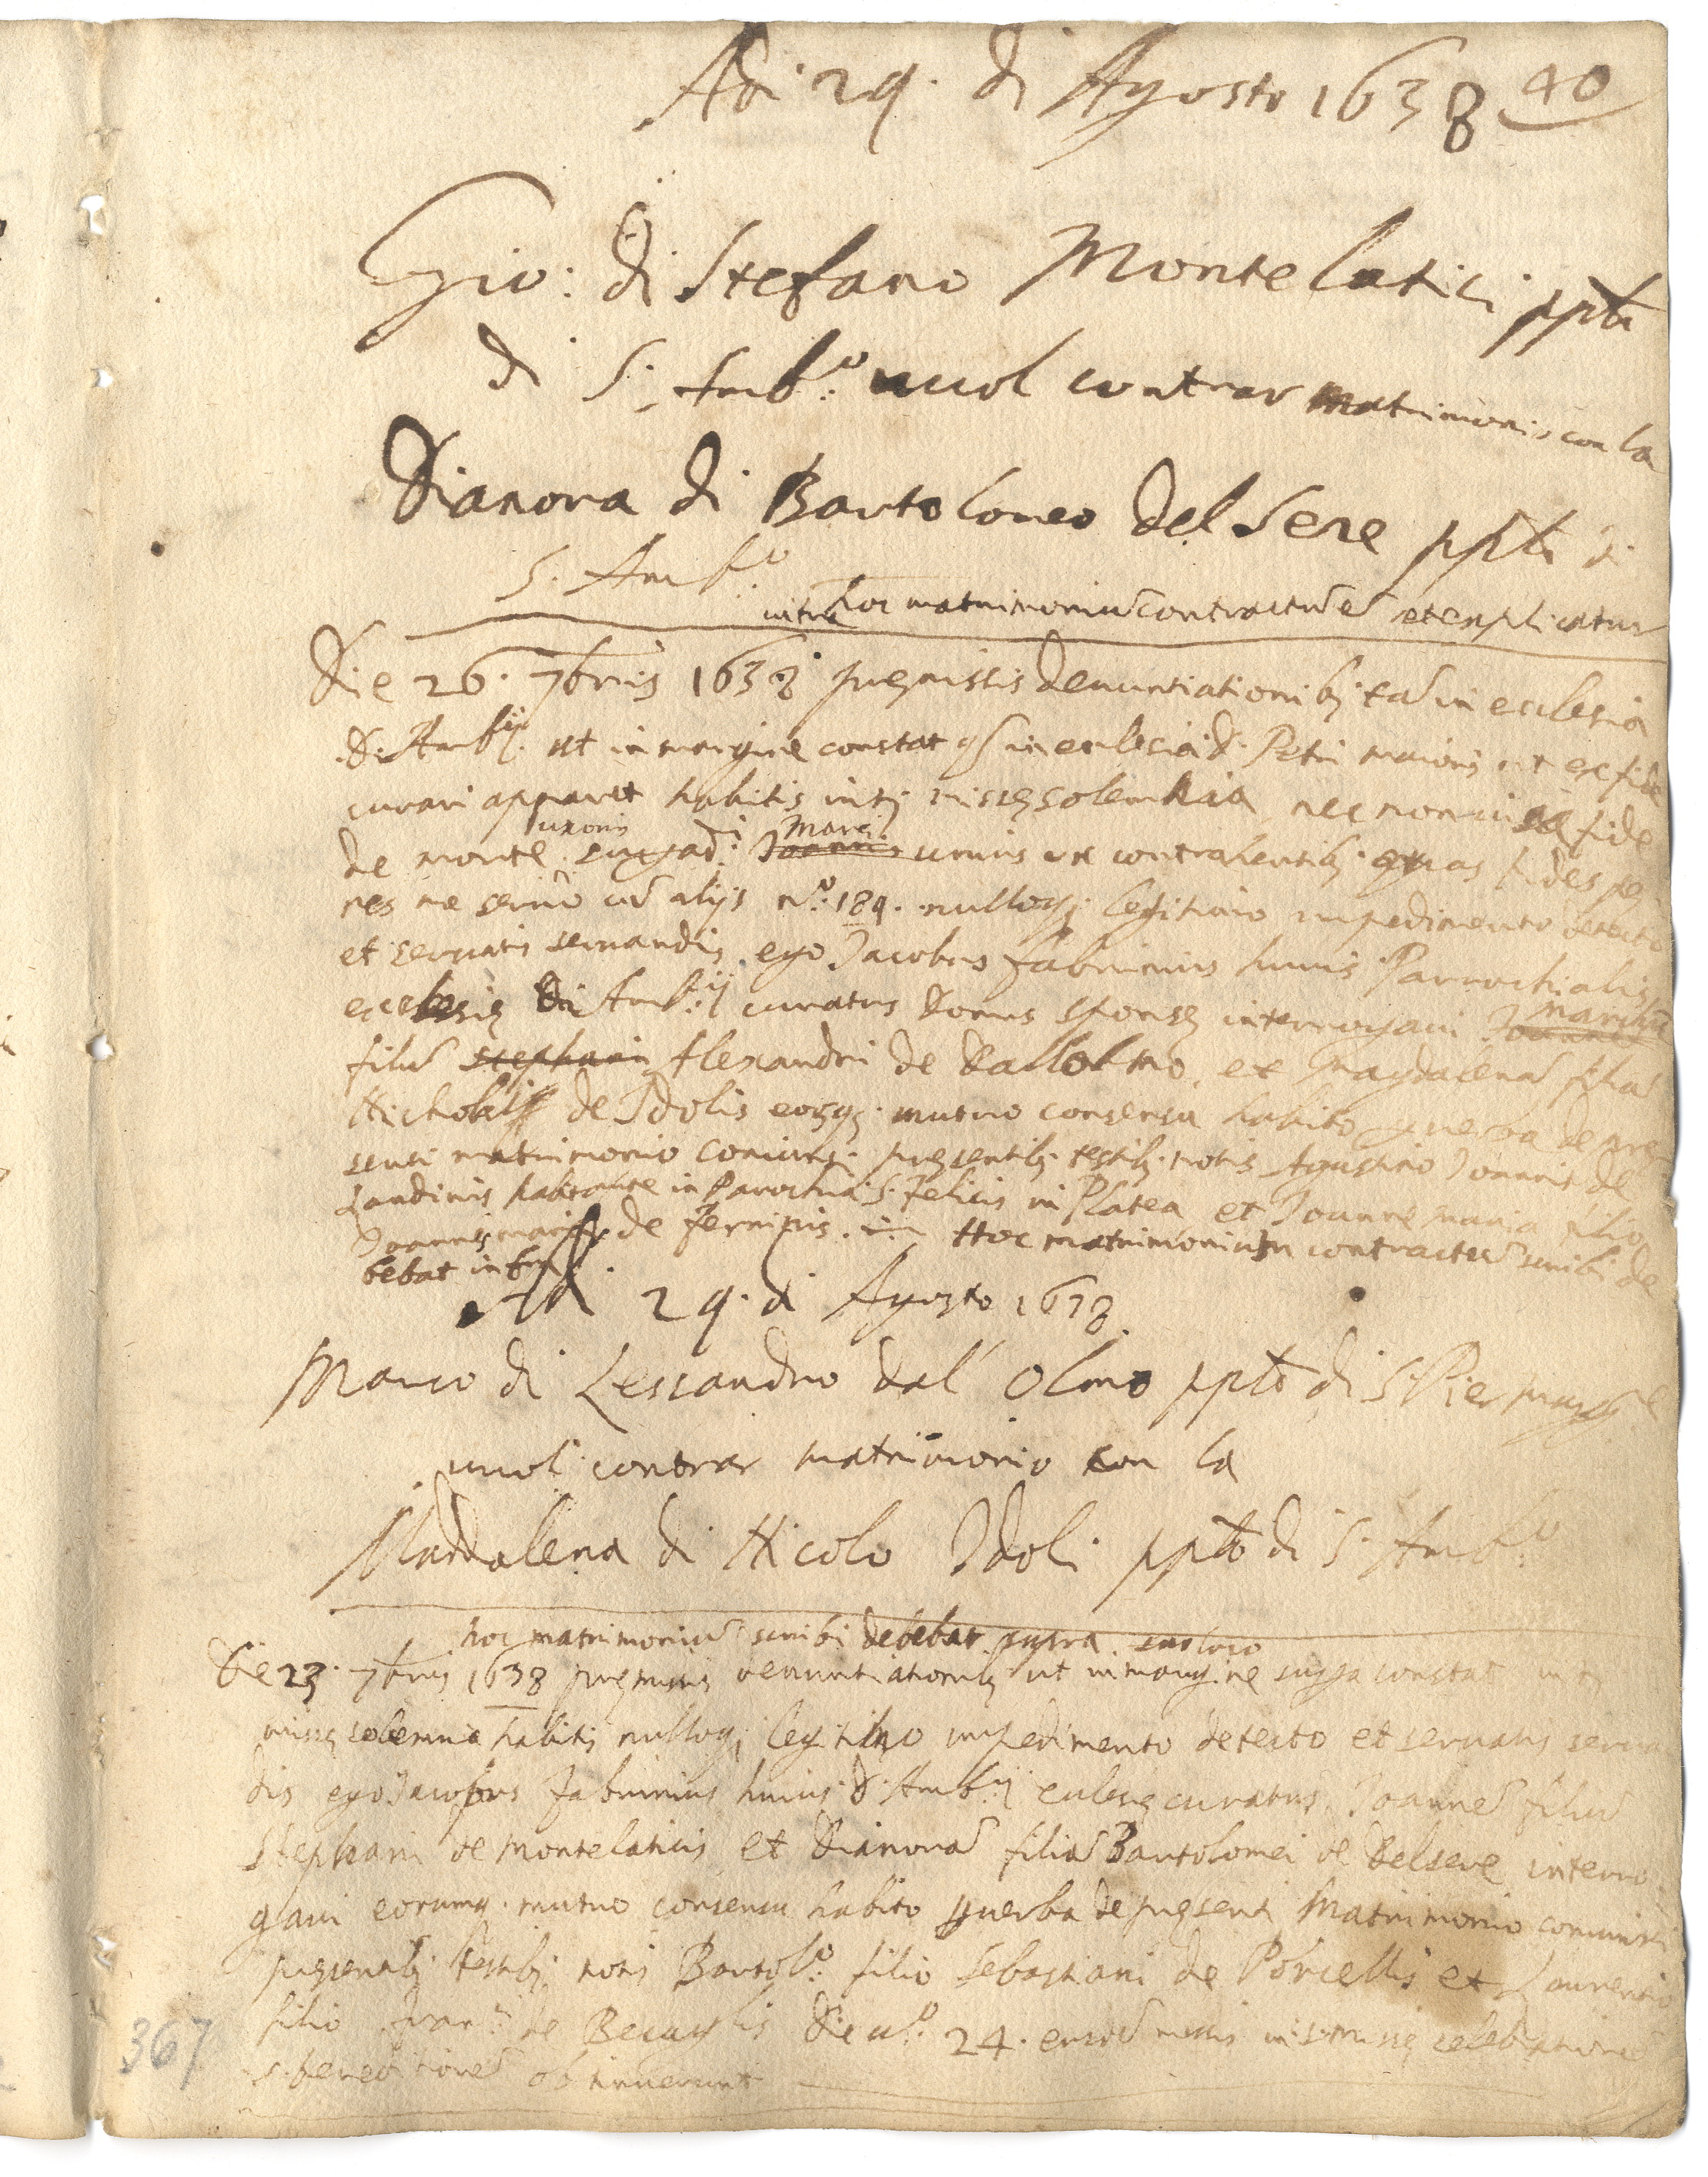 Adi 29. di Agosto 1638 40
Gio: di Stefano Montelatici ppło
di S. Amb.º vuol contrar matrimonio con la
Dianora di Bartolomeo del Sere ppło di
S. Amb.º
infra hoc matrimoniũ contractũ e et explicatur
Die 26. 7bris 1638 pręmissis denuntiationibȝ tã in ecclesia
D. Ambȷj. ut in margine constat qȝ in ecclesia d. Petri maioris ut ex fide
curari apparet habitis intȝ missę solemnia nec non visa fide
de monte uxoris Joannis Marci unius ex contrahentibȝ quas fides pę
nes me servo cũ alijs nº. 189. nulloqȝ legitimo impedimento detecto
et servatis servandis ego Jacobus Fabrinius huius Parrochialis
ecclesię Di Ambȷj curatus domus sponsę interrogavi Joannes Marcũ
filiũ stephani Alexandri de Dallolmo, et Magdalenã filiã
Nicholai de Idolis eorȝqȝ. mutuo consensu habito p verba de prę
senti matrimonio coniunxi. pręsentibȝ. testibȝ. notis Agustino Joannis de
Landinis habitante in Parochia S. Felicis in Platea et Joanne maria filio
Joannis de Ferninis. in Hoc matrimonium contractũ scribi de
bebat infra
Adi 29. di Agosto 1638.
Marco di Lessandro dal' Olmo ppło di S. Pier magre
vuol contrar matrimonio con la
Maddalena di Nicolo Idoli ppło di S. Amb.º
hoc matrimoniũ scribi debebat supra suo loco
Die 23. 7bris 1638 pręmissis denuntiationibȝ ut in margine supra constat intȝ
missę solemnia habitis nulloqȝ legitimo impedimento detecto et servatis servan
dis ego Jacobus Fabrinius huius D. Ambȷj ecclesię curatus Joannẽ filiũ
Stephani de Montelaticis et Dianorã filiã Bartolomei de Delsere interro
gavi eorumqȝ. mutuo consensu habito p verba de pręsenti Matrimonio coniunxi
pręsentibȝ testibȝ notis Bartolº. filio Sebastiani de Porcellis et Laurentio
filio Fran.ci de Becuglis Die vº. 24. eiusdẽ mensis in s. missę celebratione
s. beneditionẽ obtinuerunt
367